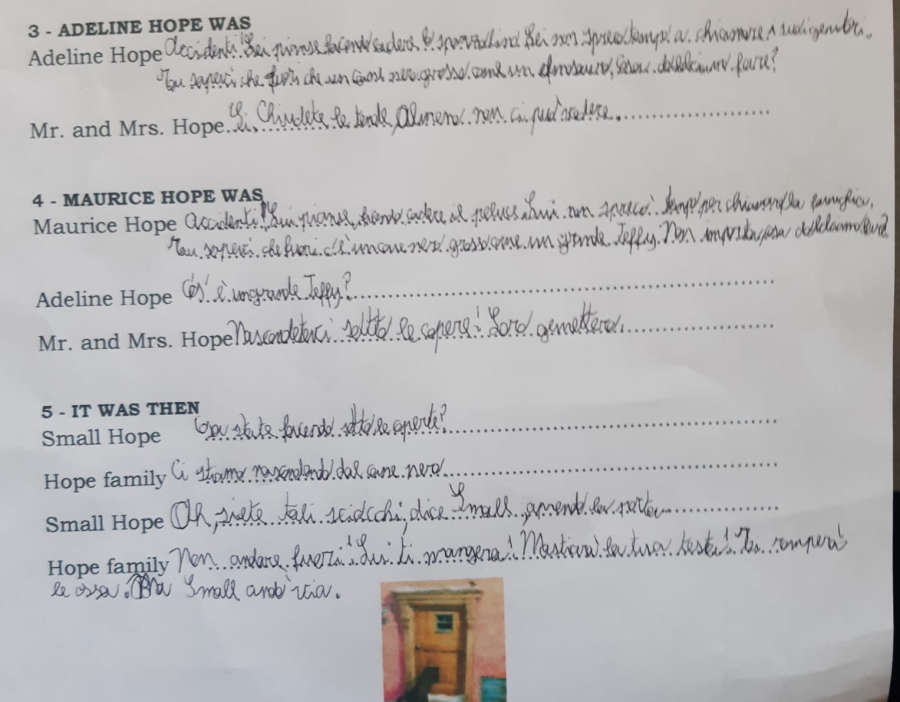 3 - ADELINE HOPE WAS
Adeline Hope Accidenti! Lei rimase facendo cadere lo spazzolino Lei non sprecò tempo a chiamare i suoi genitori.
Tu sapevi che fuori c'è un cane nero grosso come un, cosa dobbiamo fare?
Mr. and Mrs. Hope Si, Chiudete le tende, Almeno non ci può vedere.
4 - MAURICE HOPE WAS
Maurice Hope Accidenti! Lui, facendo cadere il peluce. Lui non sprecò tempo per chiamare la famiglia.
Tu sapevi che fuori c'è un cane nero grosso come un grande Jeffy. Non
Adeline Hope Cos' è un grande Jeffy?
Mr. and Mrs. Hope Nascondetevi sotto le coperte! Loro gemettero.
5 - IT WAS THEN
Small Hope Cosa state facendo sotto le coperte?
Hope family Ci stiamo nascondendo dal cane nero
Small Hope Oh, siete tali sciocchi, dice Small, aprendo la porta
Hope family Non andare fuori! Lui ti mangerà! Masticerà la tua testa! Ti romperà
le ossa. Ma Small andò via.